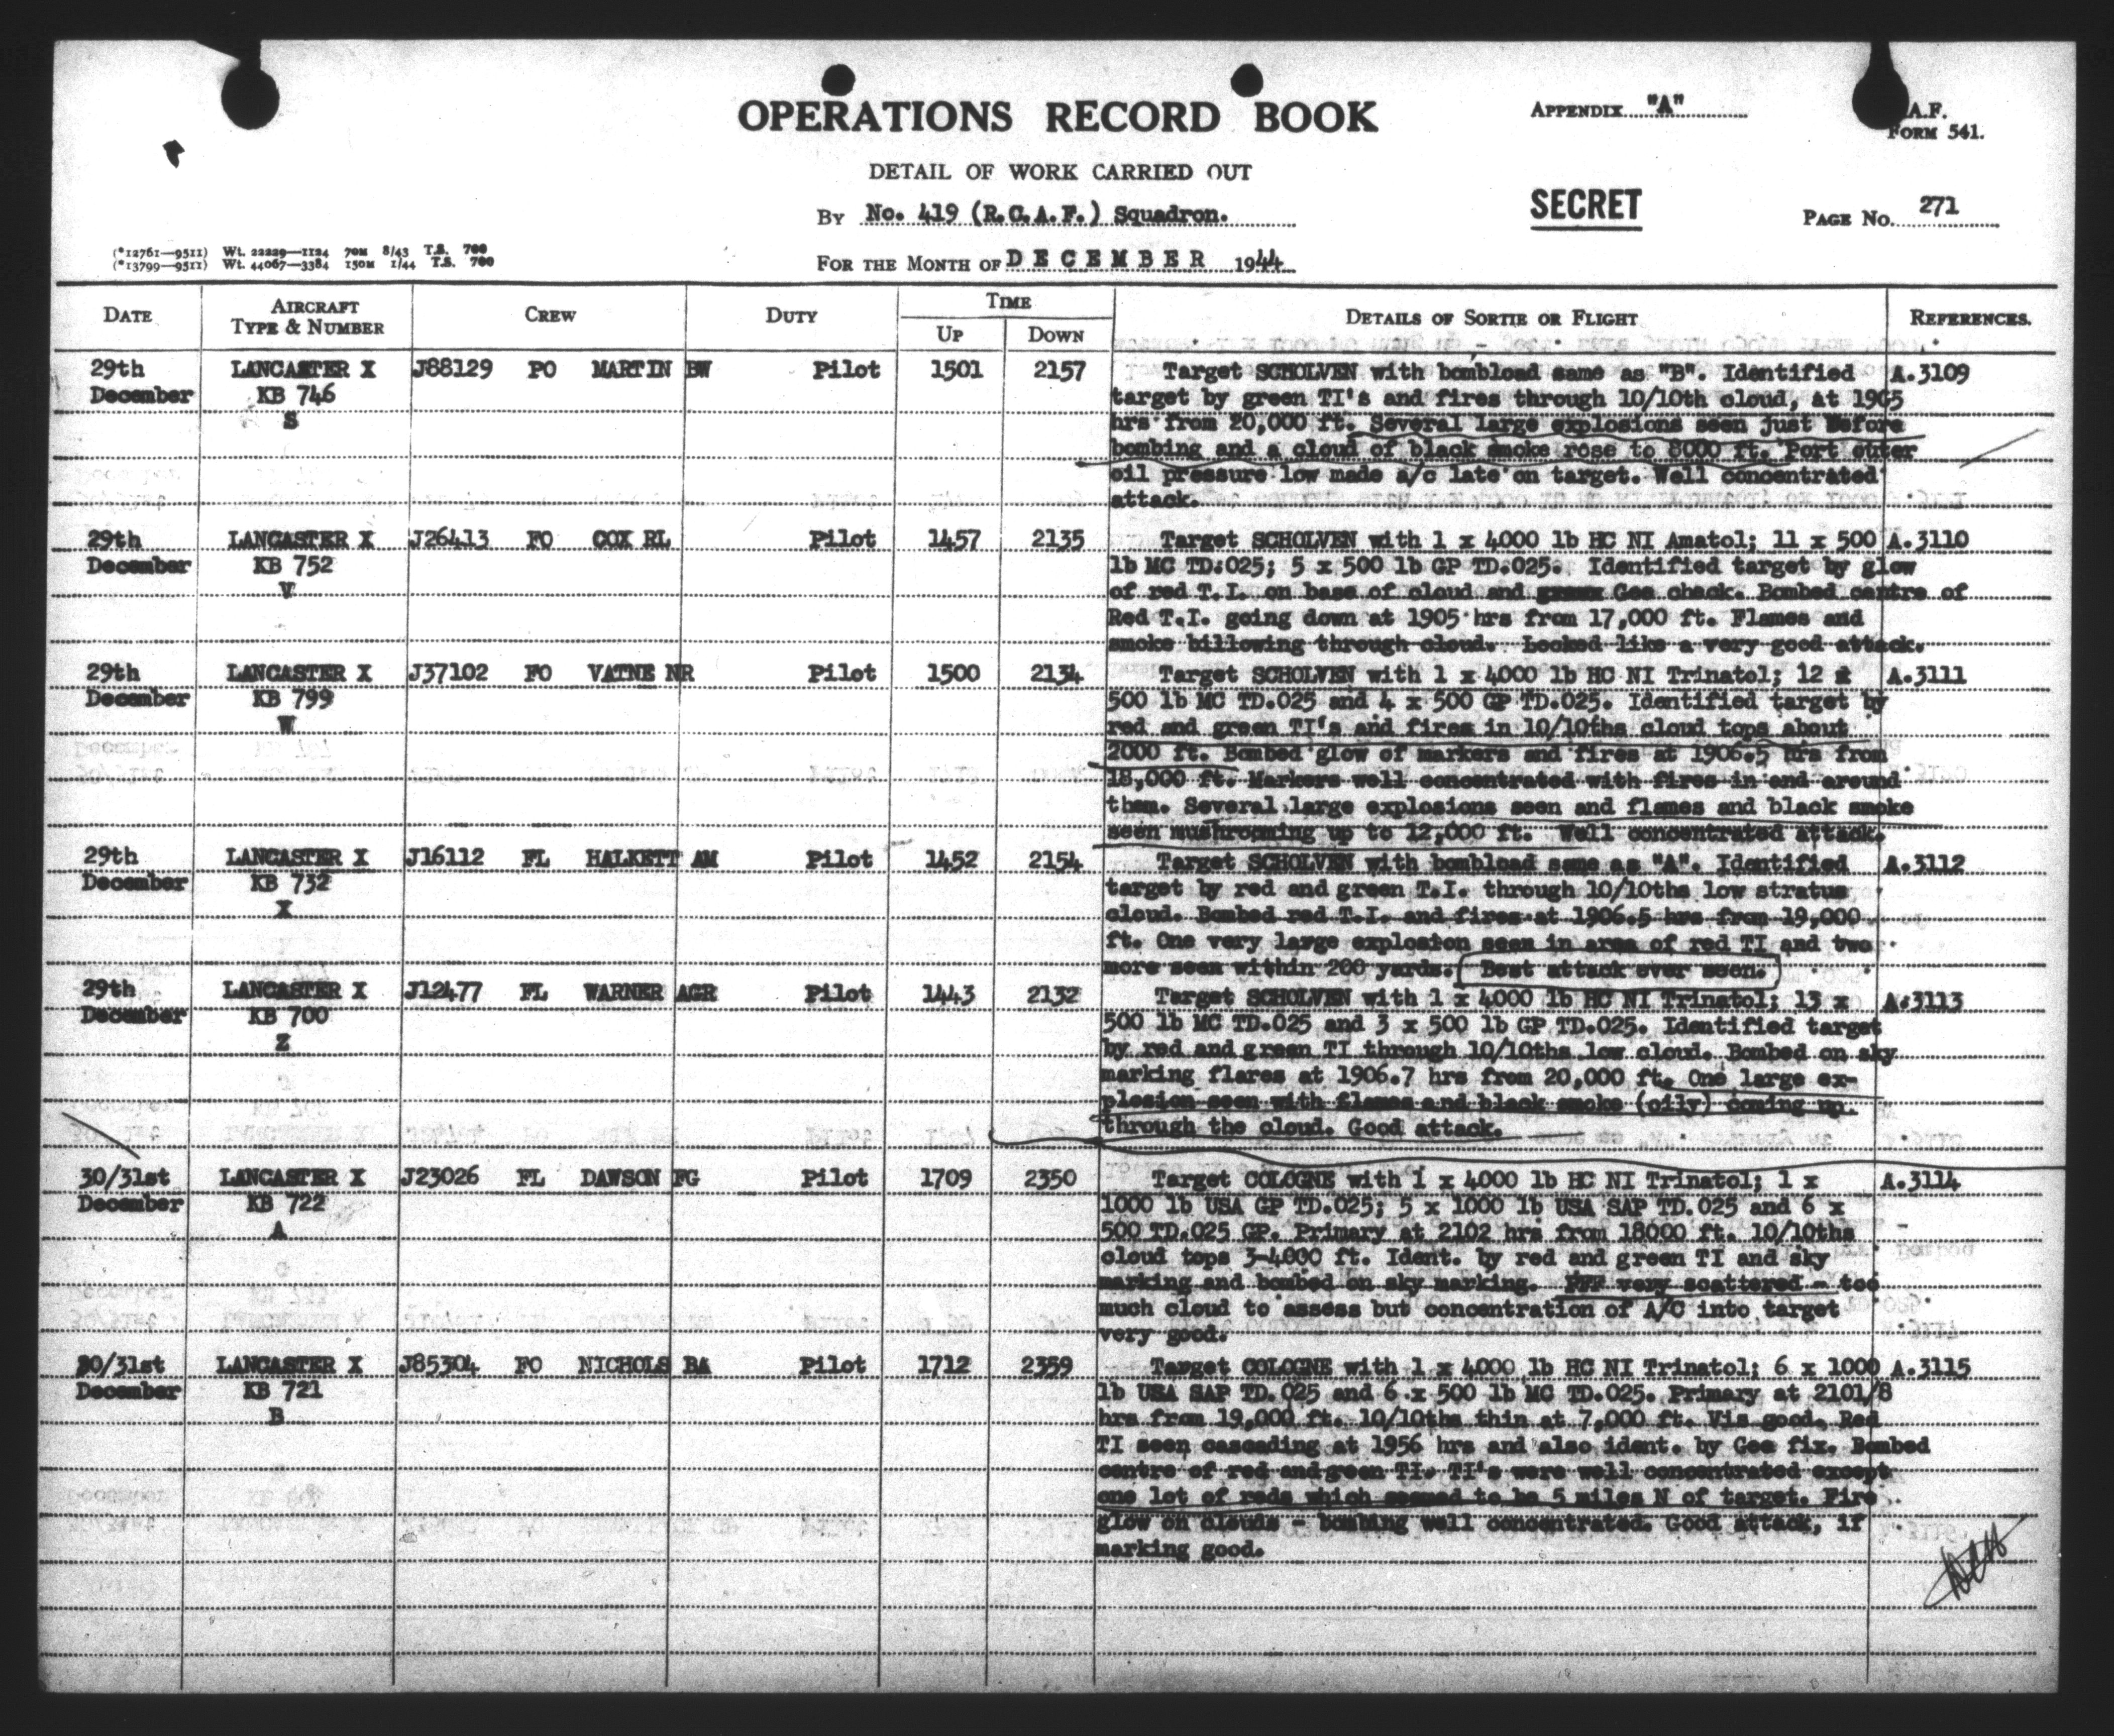 OPERATIONS RECORD BOOK
APPENDIX "A"
A.F.
FORM 541.
DETAIL OF WORK CARRIED OUT
SECRET
BY No. 419 (R.C.A.F.) Squadron.
PAGE No. 271
(*12761—9511) Wt. 22229—1124 70M 8/43 T.S. 700
(*13799—9511) Wt. 44067—3384 150M 1/44 T.S. 700
FOR THE MONTH OF DECEMBER 1944
DATE AIRCRAFT TYPE & NUMBER CREW DUTY TIME UP DOWN DETAILS OF SORTIE OR FLIGHT REFERENCES.
29th LANCASTER X J88129 PO MARTIN BW Pilot 1501 2157 Target SCHOLVEN with bombload same as "B". Identified A.3109
December KB 746 target by green TI's and fires through 10/10th cloud, at 1905
S hrs from 20,000 ft. Several large explosions seen just before
bombing and a cloud of black smoke rose to 8000 ft. Port outer
oil pressure low made a/c late on target. Well concentrated
attack.
29th LANCASTER X J26413 FO COX RL Pilot 1457 2135 Target SCHOLVEN with 1 x 4000 lb HC NI Amatol; 11 x 500 A.3110
December KB 752 lb MC TD.025; 5 x 500 lb GP TD.025. Identified target by glow
V of red T.I. on base of cloud and Gee check. Bombed centre of
Red T.I. going down at 1905 hrs from 17,000 ft. Flames and
smoke billowing through cloud. Looked like a very good attack.
29th LANCASTER X J37102 FO VATNE NR Pilot 1500 2134 Target SCHOLVEN with 1 x 4000 lb HC NI Trinatol; 12 x A.3111
December KB 799 500 lb MC TD.025 and 4 x 500 GP TD.025. Identified target by
W red and green TI's and fires in 10/10ths cloud tops about
2000 ft. Bombed glow of markers and fires at 1906.5 hrs from
18,000 ft. Markers well concentrated with fires in and around
them. Several large explosions seen and flames and black smoke
seen mushrooming up to 12,000 ft. Well concentrated attack.
29th LANCASTER X J16112 FL HALKETT AM Pilot 1452 2154 Target SCHOLVEN with bombload same as "A". Identified A.3112
December KB 732 target by red and green T.I. through 10/10ths low stratus
X cloud. Bombed red T.I. and fires at 1906.5 hrs from 19,000
ft. One very large explosion seen in area of red TI and two
more seen within 200 yards. Best attack ever seen.
29th LANCASTER X J12477 FL WARNER AGR Pilot 1443 2132 Target SCHOLVEN with 1 x 4000 lb HC NI Trinatol; 13 x A.3113
December KB 700 500 lb MC TD.025 and 3 x 500 lb GP TD.025. Identified target
Z by red and green TI through 10/10ths low cloud. Bombed on sky
marking flares at 1906.7 hrs from 20,000 ft. One large ex-
plosion seen with flames and black smoke (oily) coming up
through the cloud. Good attack.
30/31st LANCASTER X J23026 FL DAWSON FG Pilot 1709 2350 Target COLOGNE with 1 x 4000 lb HC NI Trinatol; 1 x A.3114
December KB 722 1000 lb USA GP TD.025; 5 x 1000 lb USA SAP TD.025 and 6 x
A 500 TD.025 GP. Primary at 2102 hrs from 18000 ft. 10/10ths
cloud tops 3-4000 ft. Ident. by red and green TI and sky
marking and bombed on sky marking. PFF very scattered - too
much cloud to assess but concentration of A/C into target
very good.
30/31st LANCASTER X J85304 FO NICHOLS BA Pilot 1712 2359 Target COLOGNE with 1 x 4000 lb HC NI Trinatol; 6 x 1000 A.3115
December KB 721 lb USA SAP TD.025 and 6 x 500 lb MC TD.025. Primary at 2101/8
B hrs from 19,000 ft. 10/10ths thin at 7,000 ft. Vis good. Red
TI seen cascading at 1956 hrs and also ident. by Gee fix. Bombed
centre of red and green TI. TI's were well concentrated except
one lot of reds which seemed to be 5 miles N of target. Fire
glow on clouds - bombing well concentrated. Good attack, if
marking good.